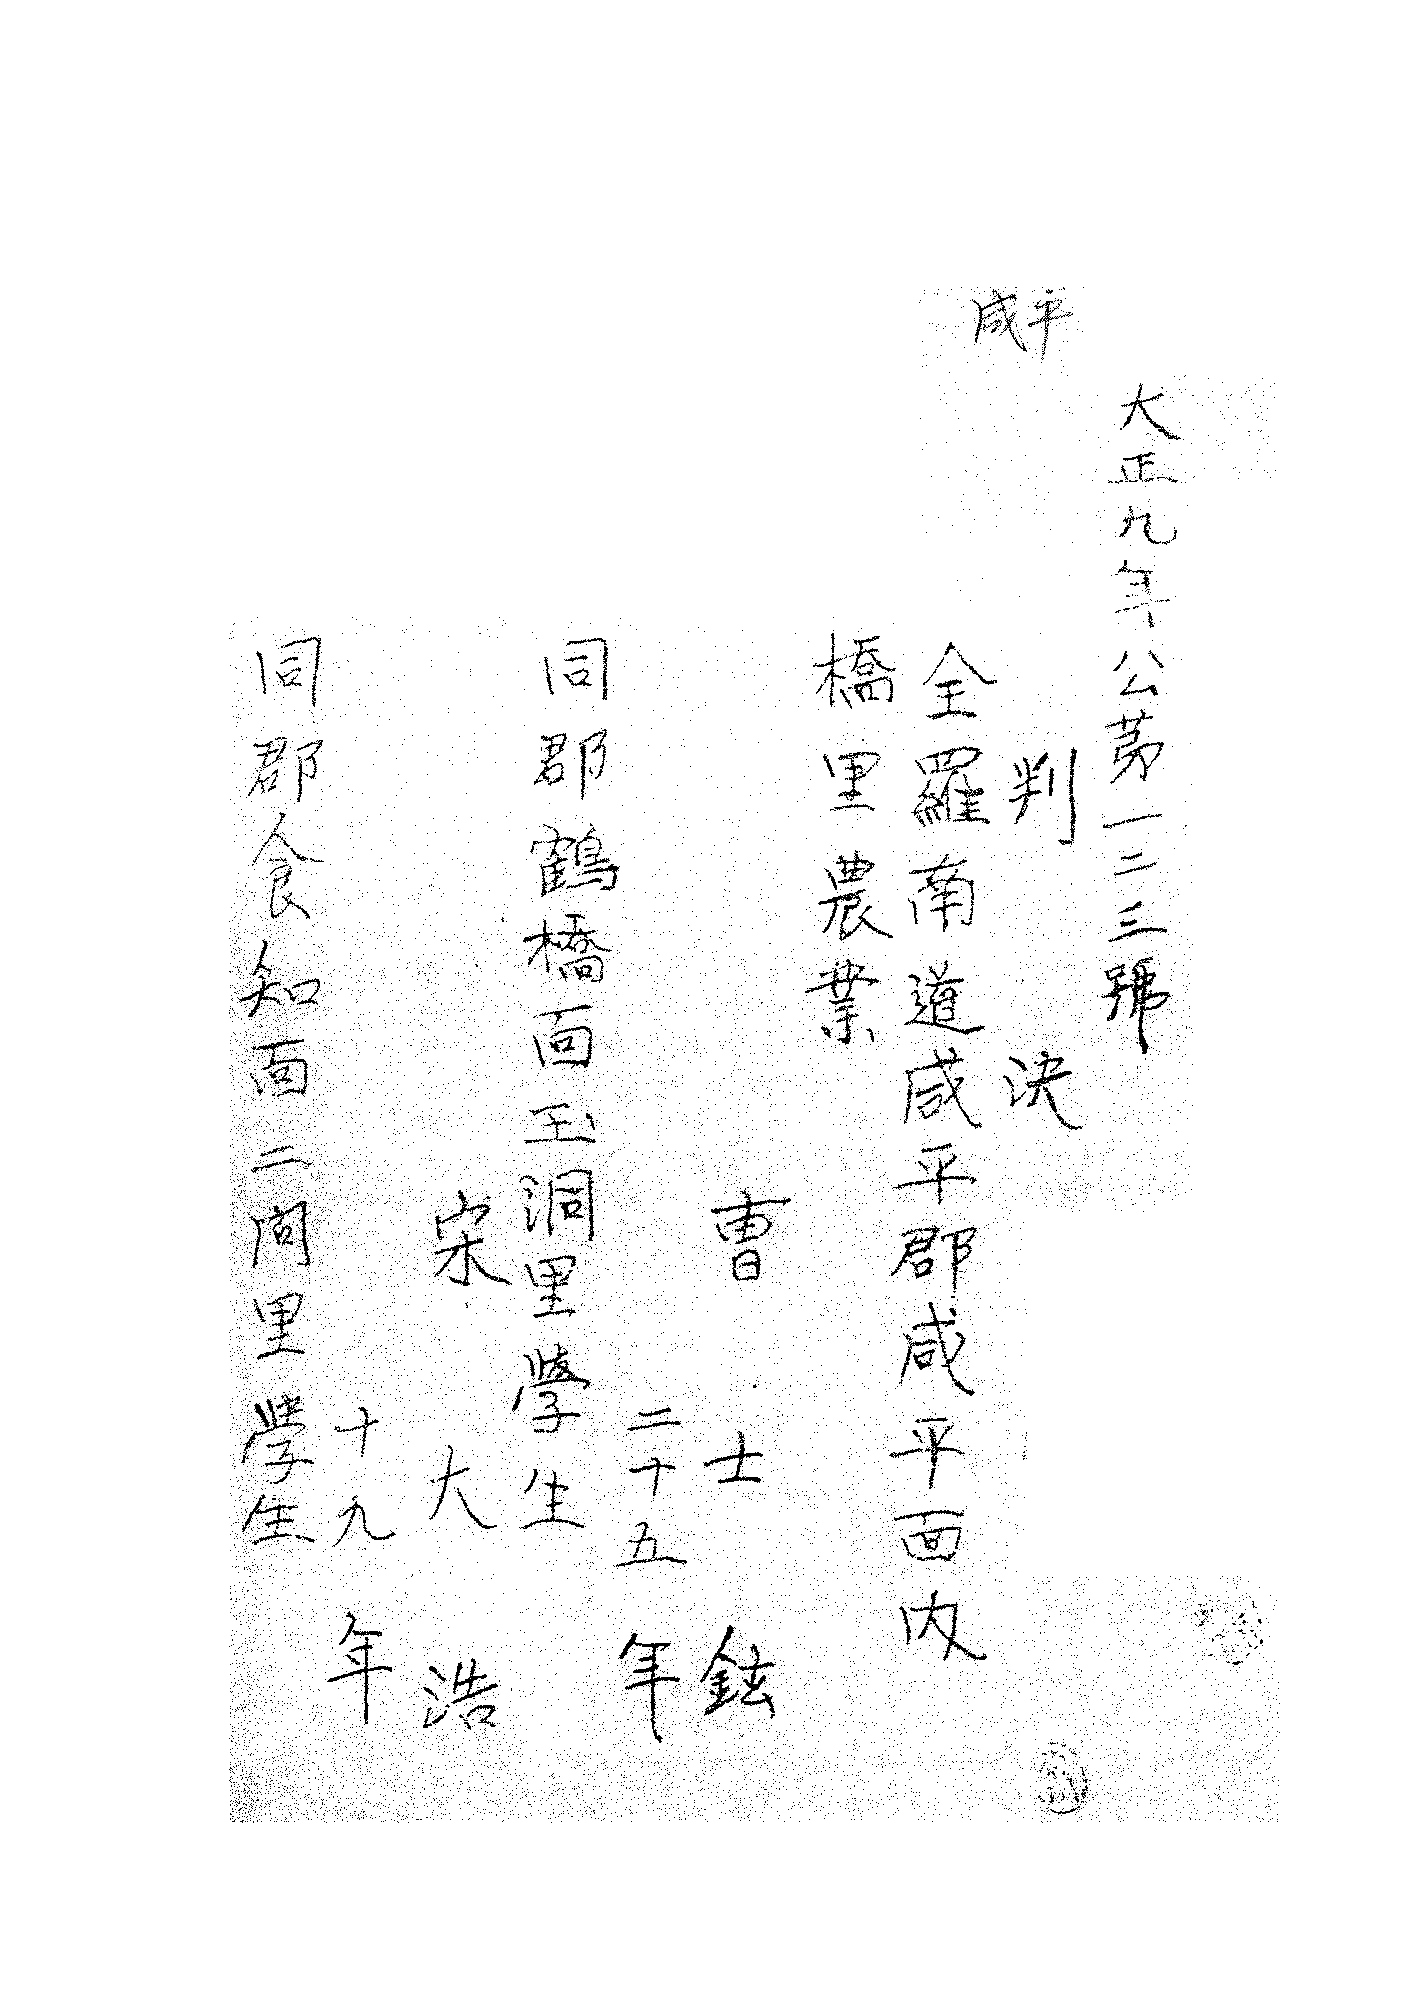 咸平
大正九年公第一二三號
判決
全羅南道咸平郡咸平面内
橋里農業
曺士鉉
二十五年
同郡鶴橋面玉洞里學生
宋大浩
十九年
同郡食知面二問里學生